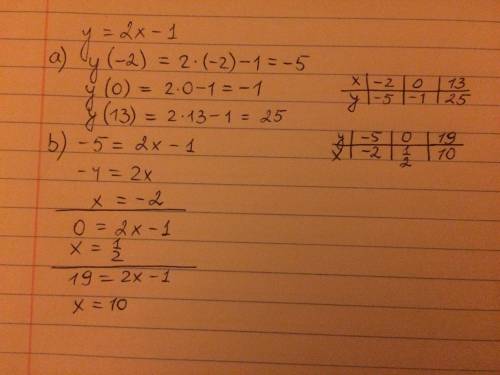 y = 2x - 1
a) y(-2) = 2·(-2)-1 = -5
y(0) = 2·0-1 = -1
y(13) = 2·13-1 = 25
x | -2 | 0 | 13
y | -5 | -1 | 25
b) -5 = 2x - 1
-4 = 2x
x = -2
0 = 2x - 1
x = 1/2
19 = 2x - 1
x = 10
y | -5 | 0 | 19
x | -2 | 1/2 | 10